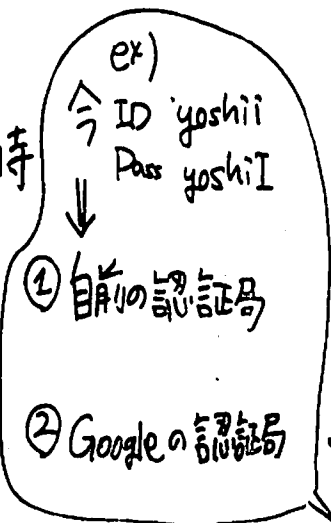 ex)
今 ID yoshii
時
Pass yoshiI
① 自前の認証局
② Googleの認証局